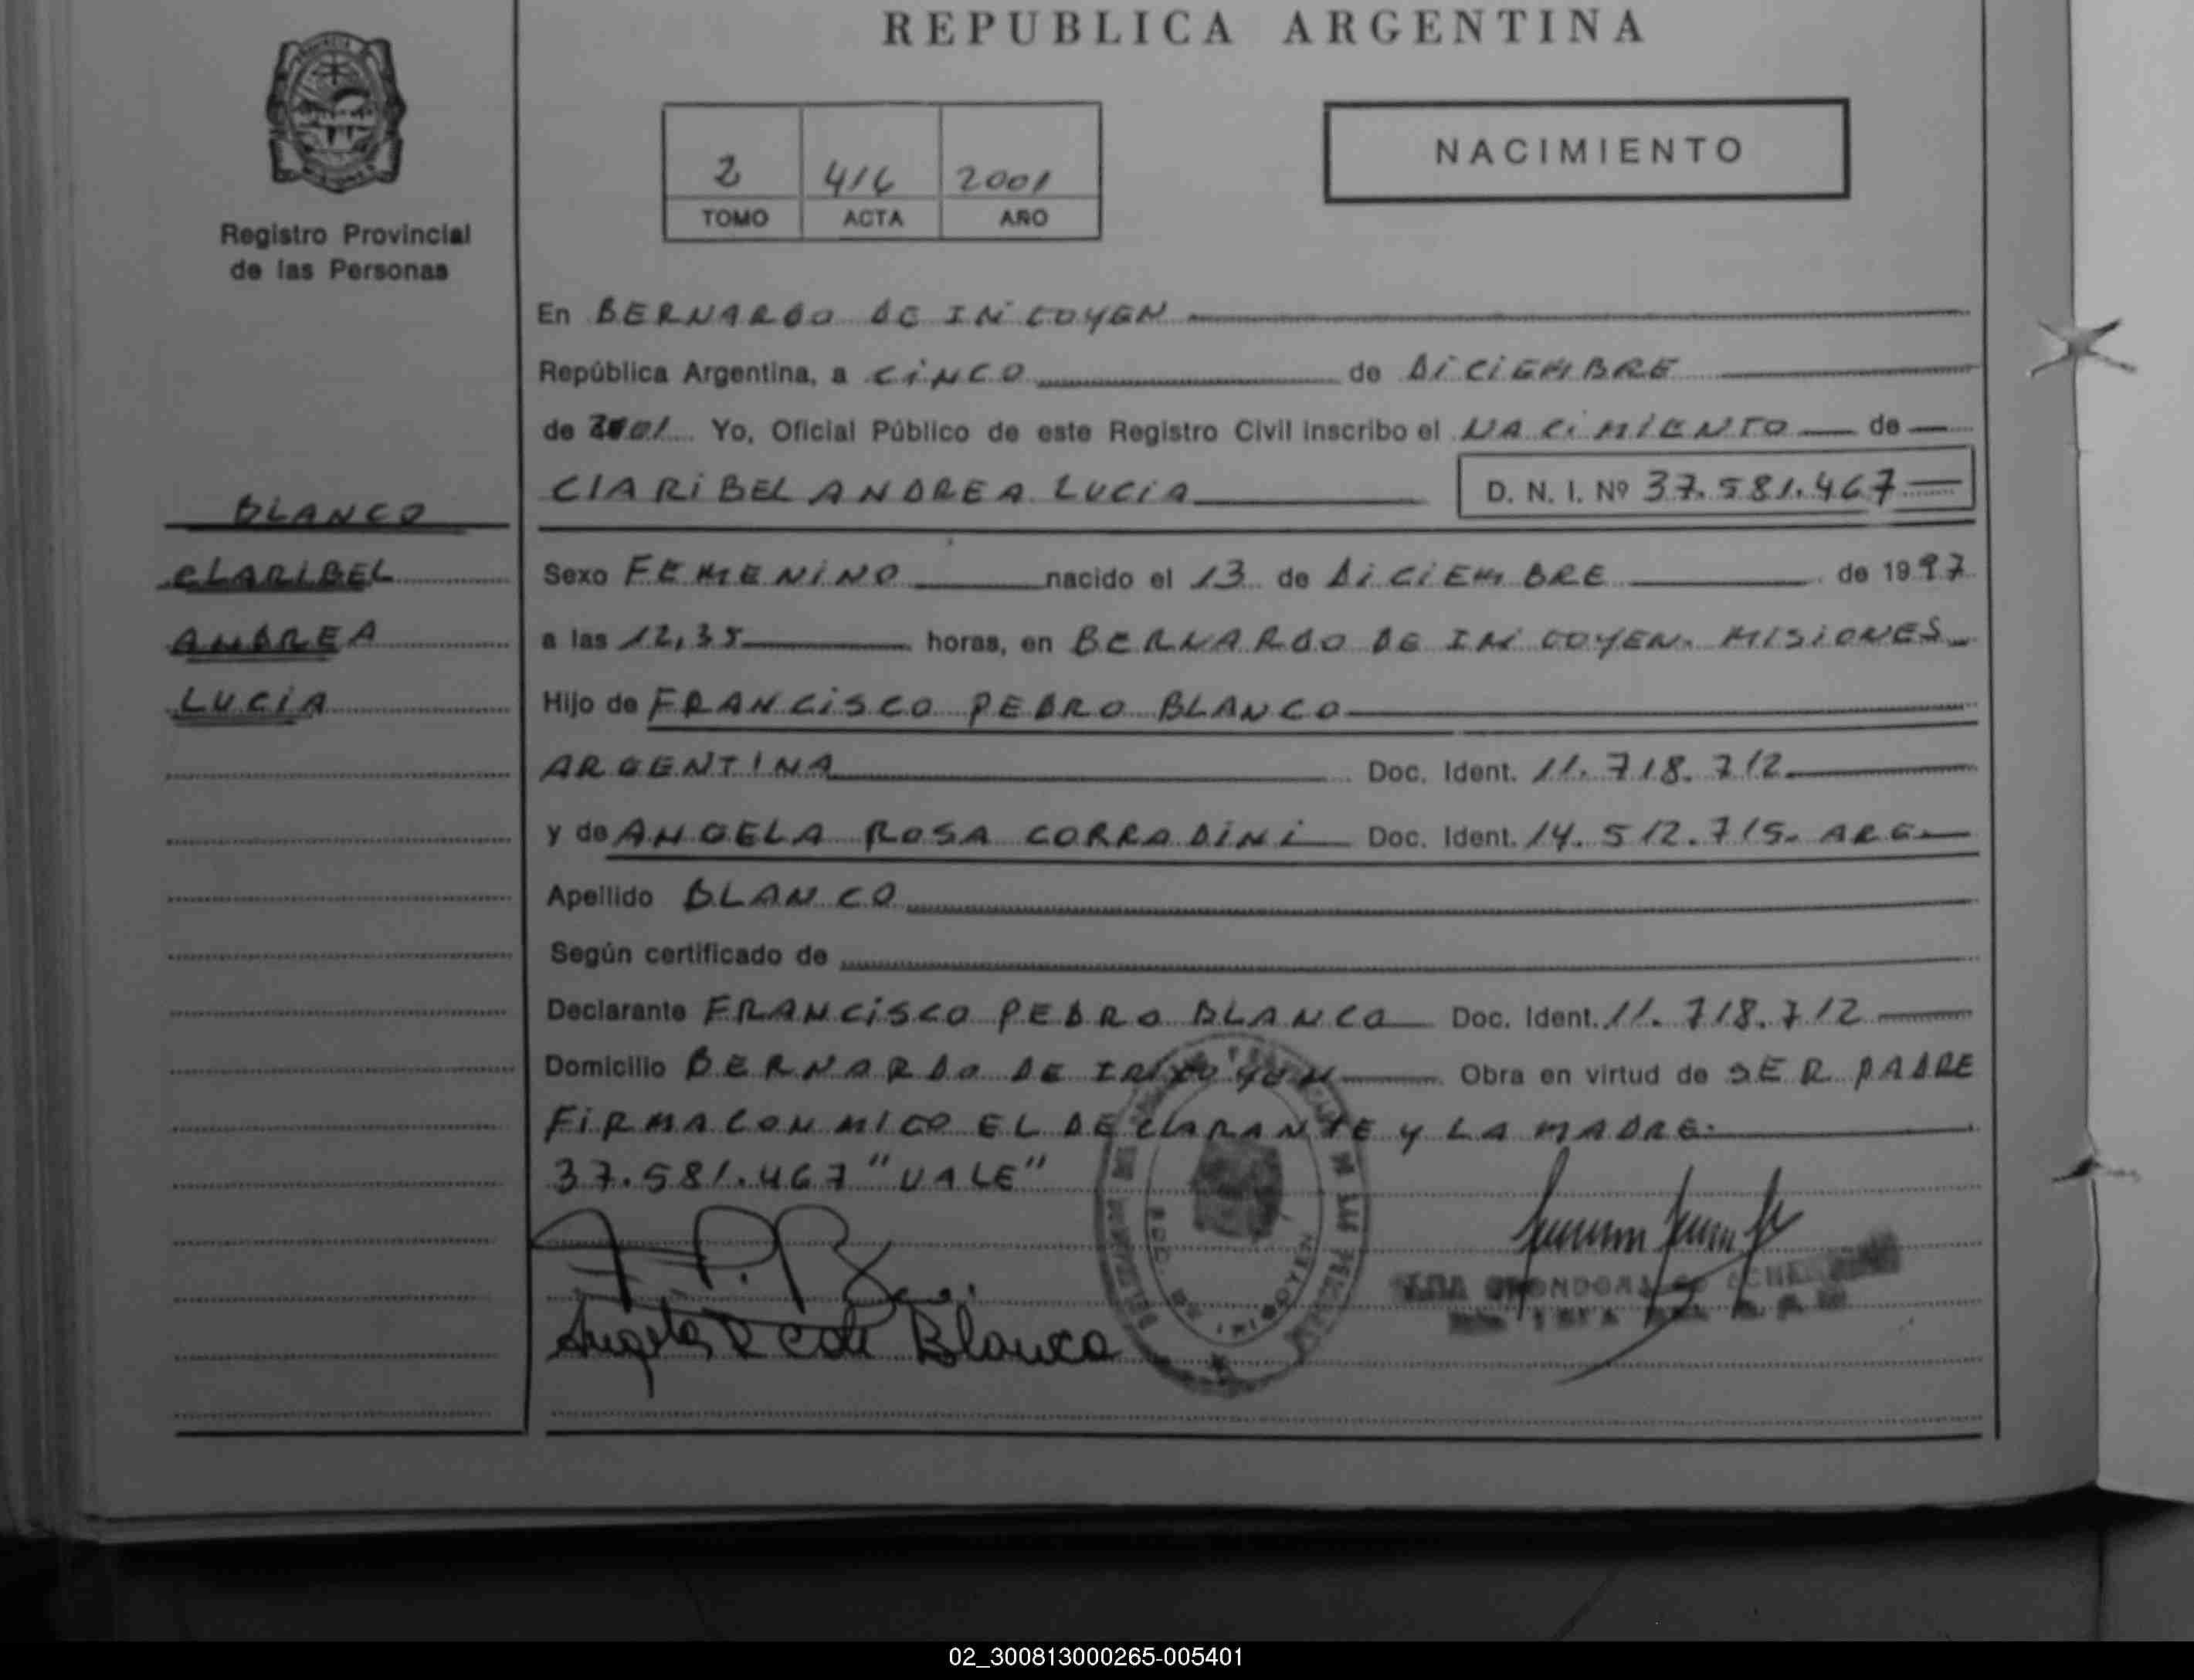 REPUBLICA ARGENTINA
NACIMIENTO
2 416 2001
TOMO ACTA AÑO
Registro Provincial
de las Personas
En BERNARDO DE IRIGOYEN
República Argentina, a CINCO de DICIEMBRE
de 2001 Yo, Oficial Público de este Registro Civil inscribo el NACIMIENTO de
CLARIBEL ANDREA LUCIA D. N. I. Nº 37.581.467
BLANCO
CLARIBEL
ANDREA
LUCIA
Sexo FEMENINO nacido el 13 de DICIEMBRE de 1997
a las 12,35 horas, en BERNARDO DE IRIGOYEN. MISIONES
Hijo de FRANCISCO PEDRO BLANCO
ARGENTINA Doc. Ident. 11.718.712
y de ANGELA ROSA CORRADINI Doc. Ident. 14.512.715. ARG
Apellido BLANCO
Según certificado de
Declarante FRANCISCO PEDRO BLANCO Doc. Ident. 11.718.712
Domicilio BERNARDO DE IRIGOYEN Obra en virtud de SER PADRE
FIRMA CONMIGO EL DECLARANTE Y LA MADRE.
37.581.467 "VALE"
Angela R C de Blanco
02_300813000265-005401